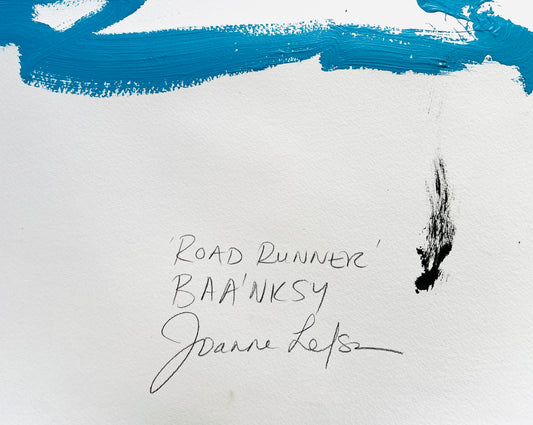 'ROAD RUNNER'
BAA'NKSY
Joanne Lefson